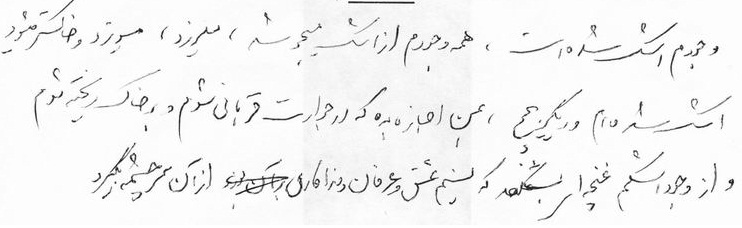 وجودم اشک شده است ، همه وجودم از اشک میجوشد ، میلرزد ، میسوزد و خاکستر میشود
اشک شده‌ام و دیگر هیچ ، بمن اجازه بده که در جوارت قربانی شوم و بر خاک ریخته شوم
و از وجود اشکم غنچه‌ای بشکفد که نسیم عشق و عرفان و فداکاری از آن سرچشمه بگیرد